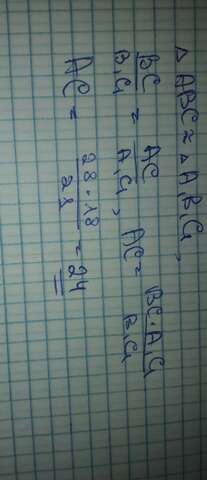 △ ABC ≈ △ A₁B₁C₁,
BC/B₁C₁ = AC/A₁C₁, AC = BC·A₁C₁/B₁C₁
AC = 28·18/21 = 24